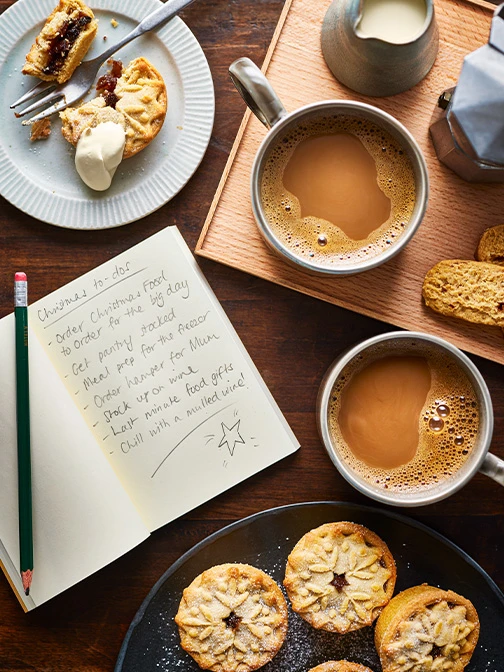 Christmas to-dos
- Order Christmas Food
to Order for the big day
Get pantry stocked
- Meal prep for the freezer
- Order hamper for Mum
- Stock up on wine
- Last minute food gifts
- Chill with a mulled wine!